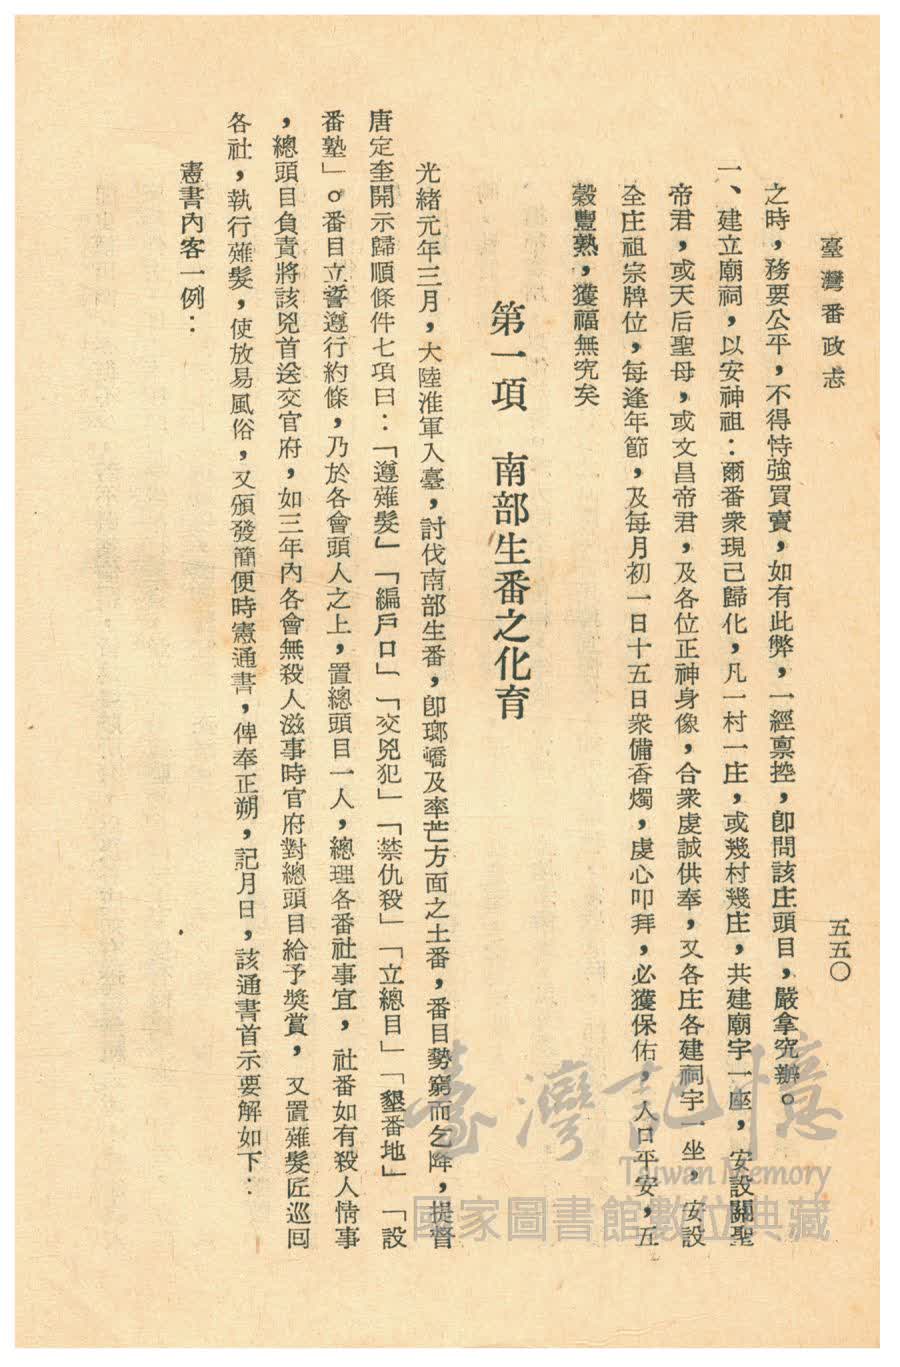 臺灣番政志
五五〇
之時，務要公平，不得恃強買賣，如有此弊，一經禀控，卽問該庄頭目，嚴拿究辦。
一、建立廟祠，以安神祖：爾番衆現已歸化，凡一村一庄，或幾村幾庄，共建廟宇一座，安設關聖
帝君，或天后聖母，或文昌帝君，及各位正神身像，合衆虔誠供奉，又各庄各建祠宇一坐，安設
全庄祖宗牌位，每逢年節，及每月初一日十五日衆備香燭，虔心叩拜，必獲保佑，人口平安，五
穀豐熟，獲福無究矣
第一項　南部生番之化育
光緒元年三月，大陸淮軍入臺，討伐南部生番，卽瑯嶠及率芒方面之土番，番目勢窮而乞降，提督
唐定奎開示歸順條件七項曰：「遵薙髮」「編戶口」「交兇犯」「禁仇殺」「立總目」「墾番地」「設
番塾」。番目立誓遵行約條，乃於各會頭人之上，置總頭目一人，總理各番社事宜，社番如有殺人情事
，總頭目負責將該兇首送交官府，如三年內各會無殺人滋事時官府對總頭目給予獎賞，又置薙髮匠巡囘
各社，執行薙髮，使放易風俗，又頒發簡便時憲通書，俾奉正朔，記月日，該通書首示要解如下：
憲書內客一例：
臺灣記憶
Taiwan Memory
國家圖書館數位典藏